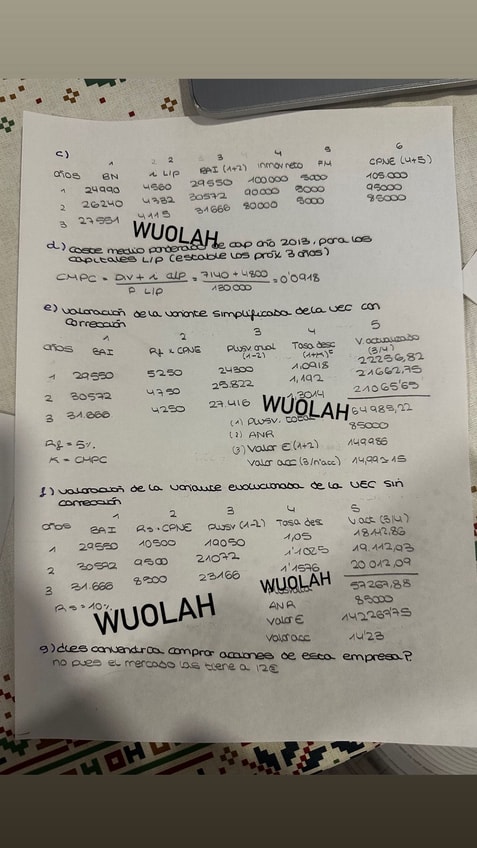 c)
1 2 3 4 5 6
años BN i L/P BAI (1+2) inmov neto FM CPNE (4+5)
1 24990 4560 29550 100000 5000 105000
2 26240 4332 30572 90000 5000 95000
3 27551 4115 31666 80000 5000 85000
WUOLAH
d) coste medio ponderado de cap año 2013, para los
capitales L/P (estable los próx 3 años)
CMPC = Div + i alp / P L/P = 7140 + 4800 / 130000 = 0'0918
e) valoración de la variante simplificada de la UEC con
corrección
1 2 3 4 5
años BAI Rf x CPNE Plusv anual (1-2) Tasa desc (1+K)^t V. actualizado (3/4)
1 29550 5250 24300 1,0918 22256,82
2 30572 4750 25.822 1,192 21662,75
3 31.666 4250 27.416 1,3014 21065'65
WUOLAH
(1) Plusv. total 64985,22
Rf = 5%. (2) ANR 85000
K = CMPC (3) Valor E (1+2) 149986
Valor acc (3/nºacc) 14,99≥15
f) valoración de la variante evolucionada de la UEC sin
corrección
1 2 3 4 5
años BAI Rs · CPNE Plusv (1-2) Tasa desc V act (3/4)
1 29550 10500 19050 1,05 18142,86
2 30572 9500 21072 1'1025 19.112,93
3 31.666 8500 23166 1'1576 20 012,09
WUOLAH
57267,88
Rs = 10%. ANR 85000
WUOLAH
Valor E 142267'75
Valor acc 14'23
g) ¿Les convendría comprar acciones de esta empresa?
no pues el mercado las tiene a 12€